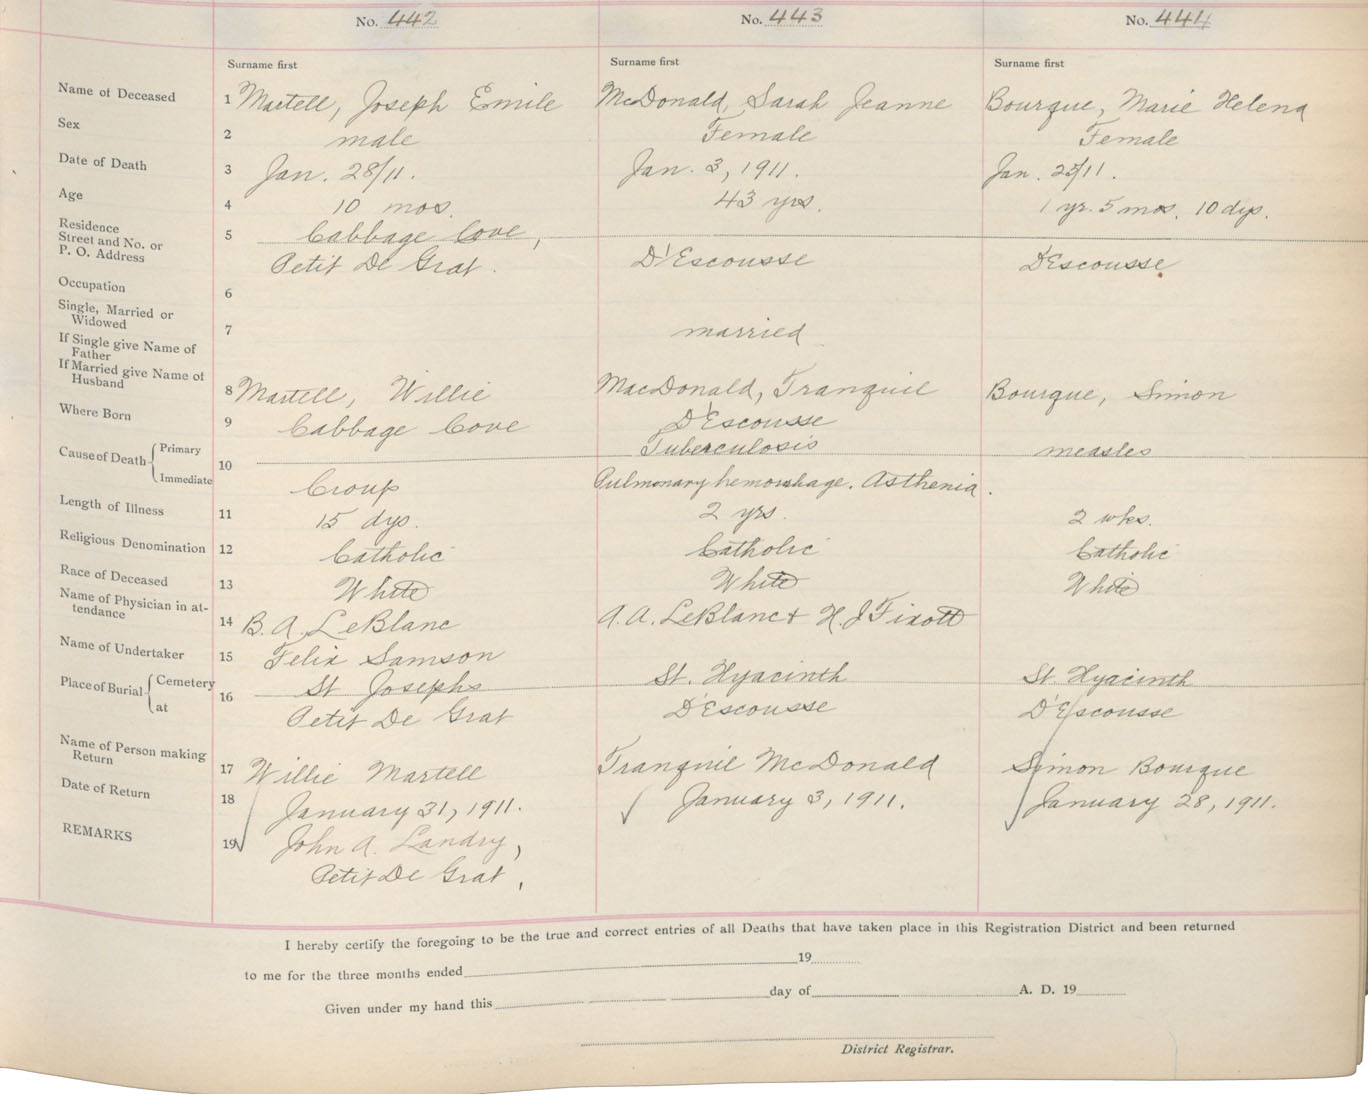 No. 442 No. 443 No. 444
Surname first Surname first Surname first
Name of Deceased 1 Martell, Joseph Emile McDonald, Sarah Jeanne Bourque, Marie Helena
Sex 2 male Female Female
Date of Death 3 Jan. 28/11. Jan. 3, 1911. Jan. 25/11.
Age 4 10 mos. 43 yrs. 1 yr. 5 mos. 10 dys.
Residence 5 Cabbage Cove,
Street and No. or
P. O. Address Petit De Grat. D'Escousse D'Escousse
Occupation 6
Single, Married or
Widowed 7 married
If Single give Name of
Father
If Married give Name of
Husband 8 Martell, Willie MacDonald, Tranquil Bourque, Simon
Where Born 9 Cabbage Cove D'Escousse
Cause of Death Primary 10 Tuberculosis measles
Immediate Croup Pulmonary hemorrhage. Asthenia.
Length of Illness 11 15 dys. 2 yrs. 2 wks.
Religious Denomination 12 Catholic Catholic Catholic
Race of Deceased 13 White White White
Name of Physician in at-
tendance 14 B. A. LeBlanc A. A. LeBlanc + H. J Fixott
Name of Undertaker 15 Felix Samson
Place of Burial Cemetery 16 St Josephs St. Hyacinth St. Hyacinth
at Petit De Grat D'Escousse D'Escousse
Name of Person making
Return 17 Willie Martell Tranquil McDonald Simon Bourque
Date of Return 18 January 31, 1911. January 3, 1911. January 28, 1911.
REMARKS 19 John A. Landry,
Petit De Grat,
I hereby certify the foregoing to be the true and correct entries of all Deaths that have taken place in this Registration District and been returned
to me for the three months ended 19
Given under my hand this day of A. D. 19
District Registrar.